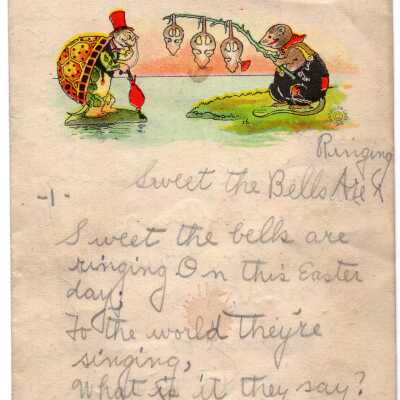 Ringing
Sweet the Bells Are
-1-
Sweet the bells are
ringing On this Easter
day;
To the world they're
singing,
What is it they say?